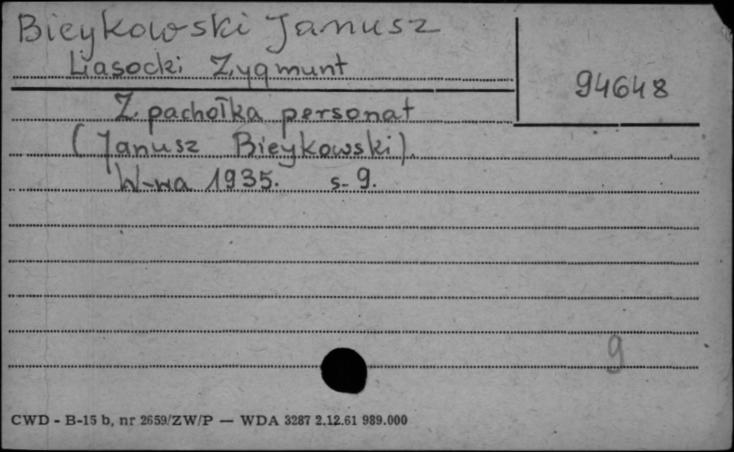 Bieykowski Janusz
Liasocki Zygmunt
94648
Z pachołka personat
(Janusz Bieykowski).
W-wa 1935. s. 9.
9
CWD - B-15 b, nr 2659/ZW/P — WDA 3287 2.12.61 989.000